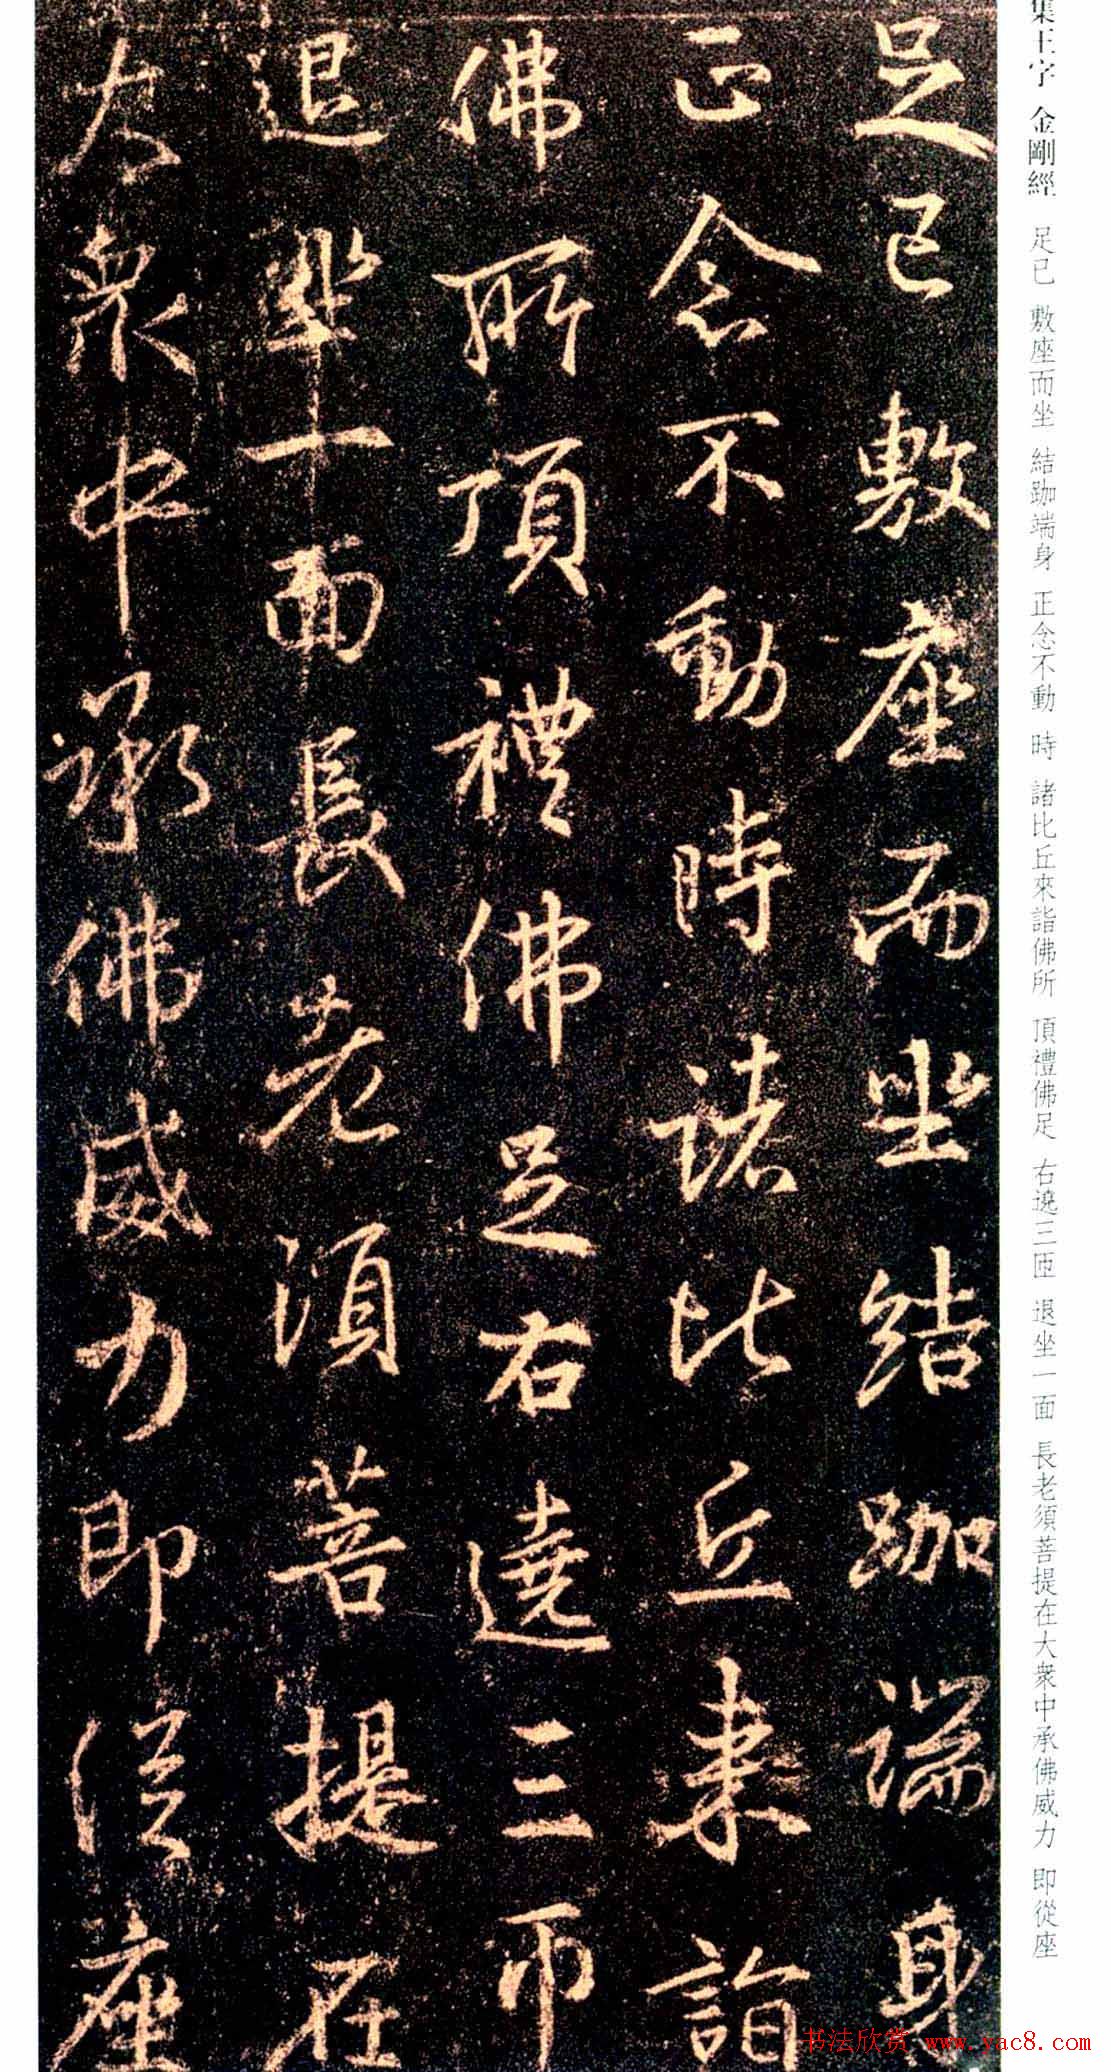 集王字 金剛經 足已 敷座而坐 結跏端身 正念不動 時 諸比丘來詣佛所 頂禮佛足 右遶三匝 退坐一面 長老須菩提在大衆中承佛威力 即從座
足已敷座而坐結跏端身
正念不動時諸比丘來詣
佛所頂禮佛足右遶三帀
退坐一面長老須菩提在
大衆中承佛威力即從座
书法欣赏 www.yac8.com